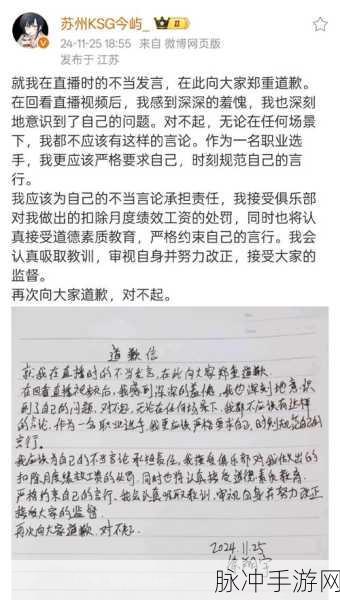 苏州KSG今屿_
24-11-25 18:55 来自 微博网页版
发布于 江苏
就我在直播时的不当发言，在此向大家郑重道歉。
在回看直播视频后，我感到深深的羞愧，我也深刻
地意识到了自己的问题。对不起，无论在任何场景
下，我都不应该有这样的言论。作为一名职业选
手，我更应该严格要求自己，时刻规范自己的言
行。
我应该为自己的不当言论承担责任，我接受俱乐部
对我做出的扣除月度绩效工资的处罚，同时也将认
真接受道德素质教育，严格约束自己的言行。我会
认真吸取教训，审视自身并努力改正，接受大家的
监督。
再次向大家道歉，对不起。
道歉信
就我在直播时的不当发言，在此向大家郑重道歉
在回看直播视频后，我感到深深的羞愧，我也深刻地意识
到了自己的问题。对不起，无论在任何场景下，我都不应该有这样
的言论。作为一名职业选手，我更应该严格要求自己，时刻规范自己的
言行。
我应该为自己的不当言论承担责任，我接受俱乐部对我做出的
扣除月度绩效工资的处罚，同时也将认真接受道德素质教育，
严格约束自己的言行。我会认真吸取教训，审视自身并努力改正
接受大家的监督。
再次向大家道歉，对不起。
2024.11.25
脉冲手游网